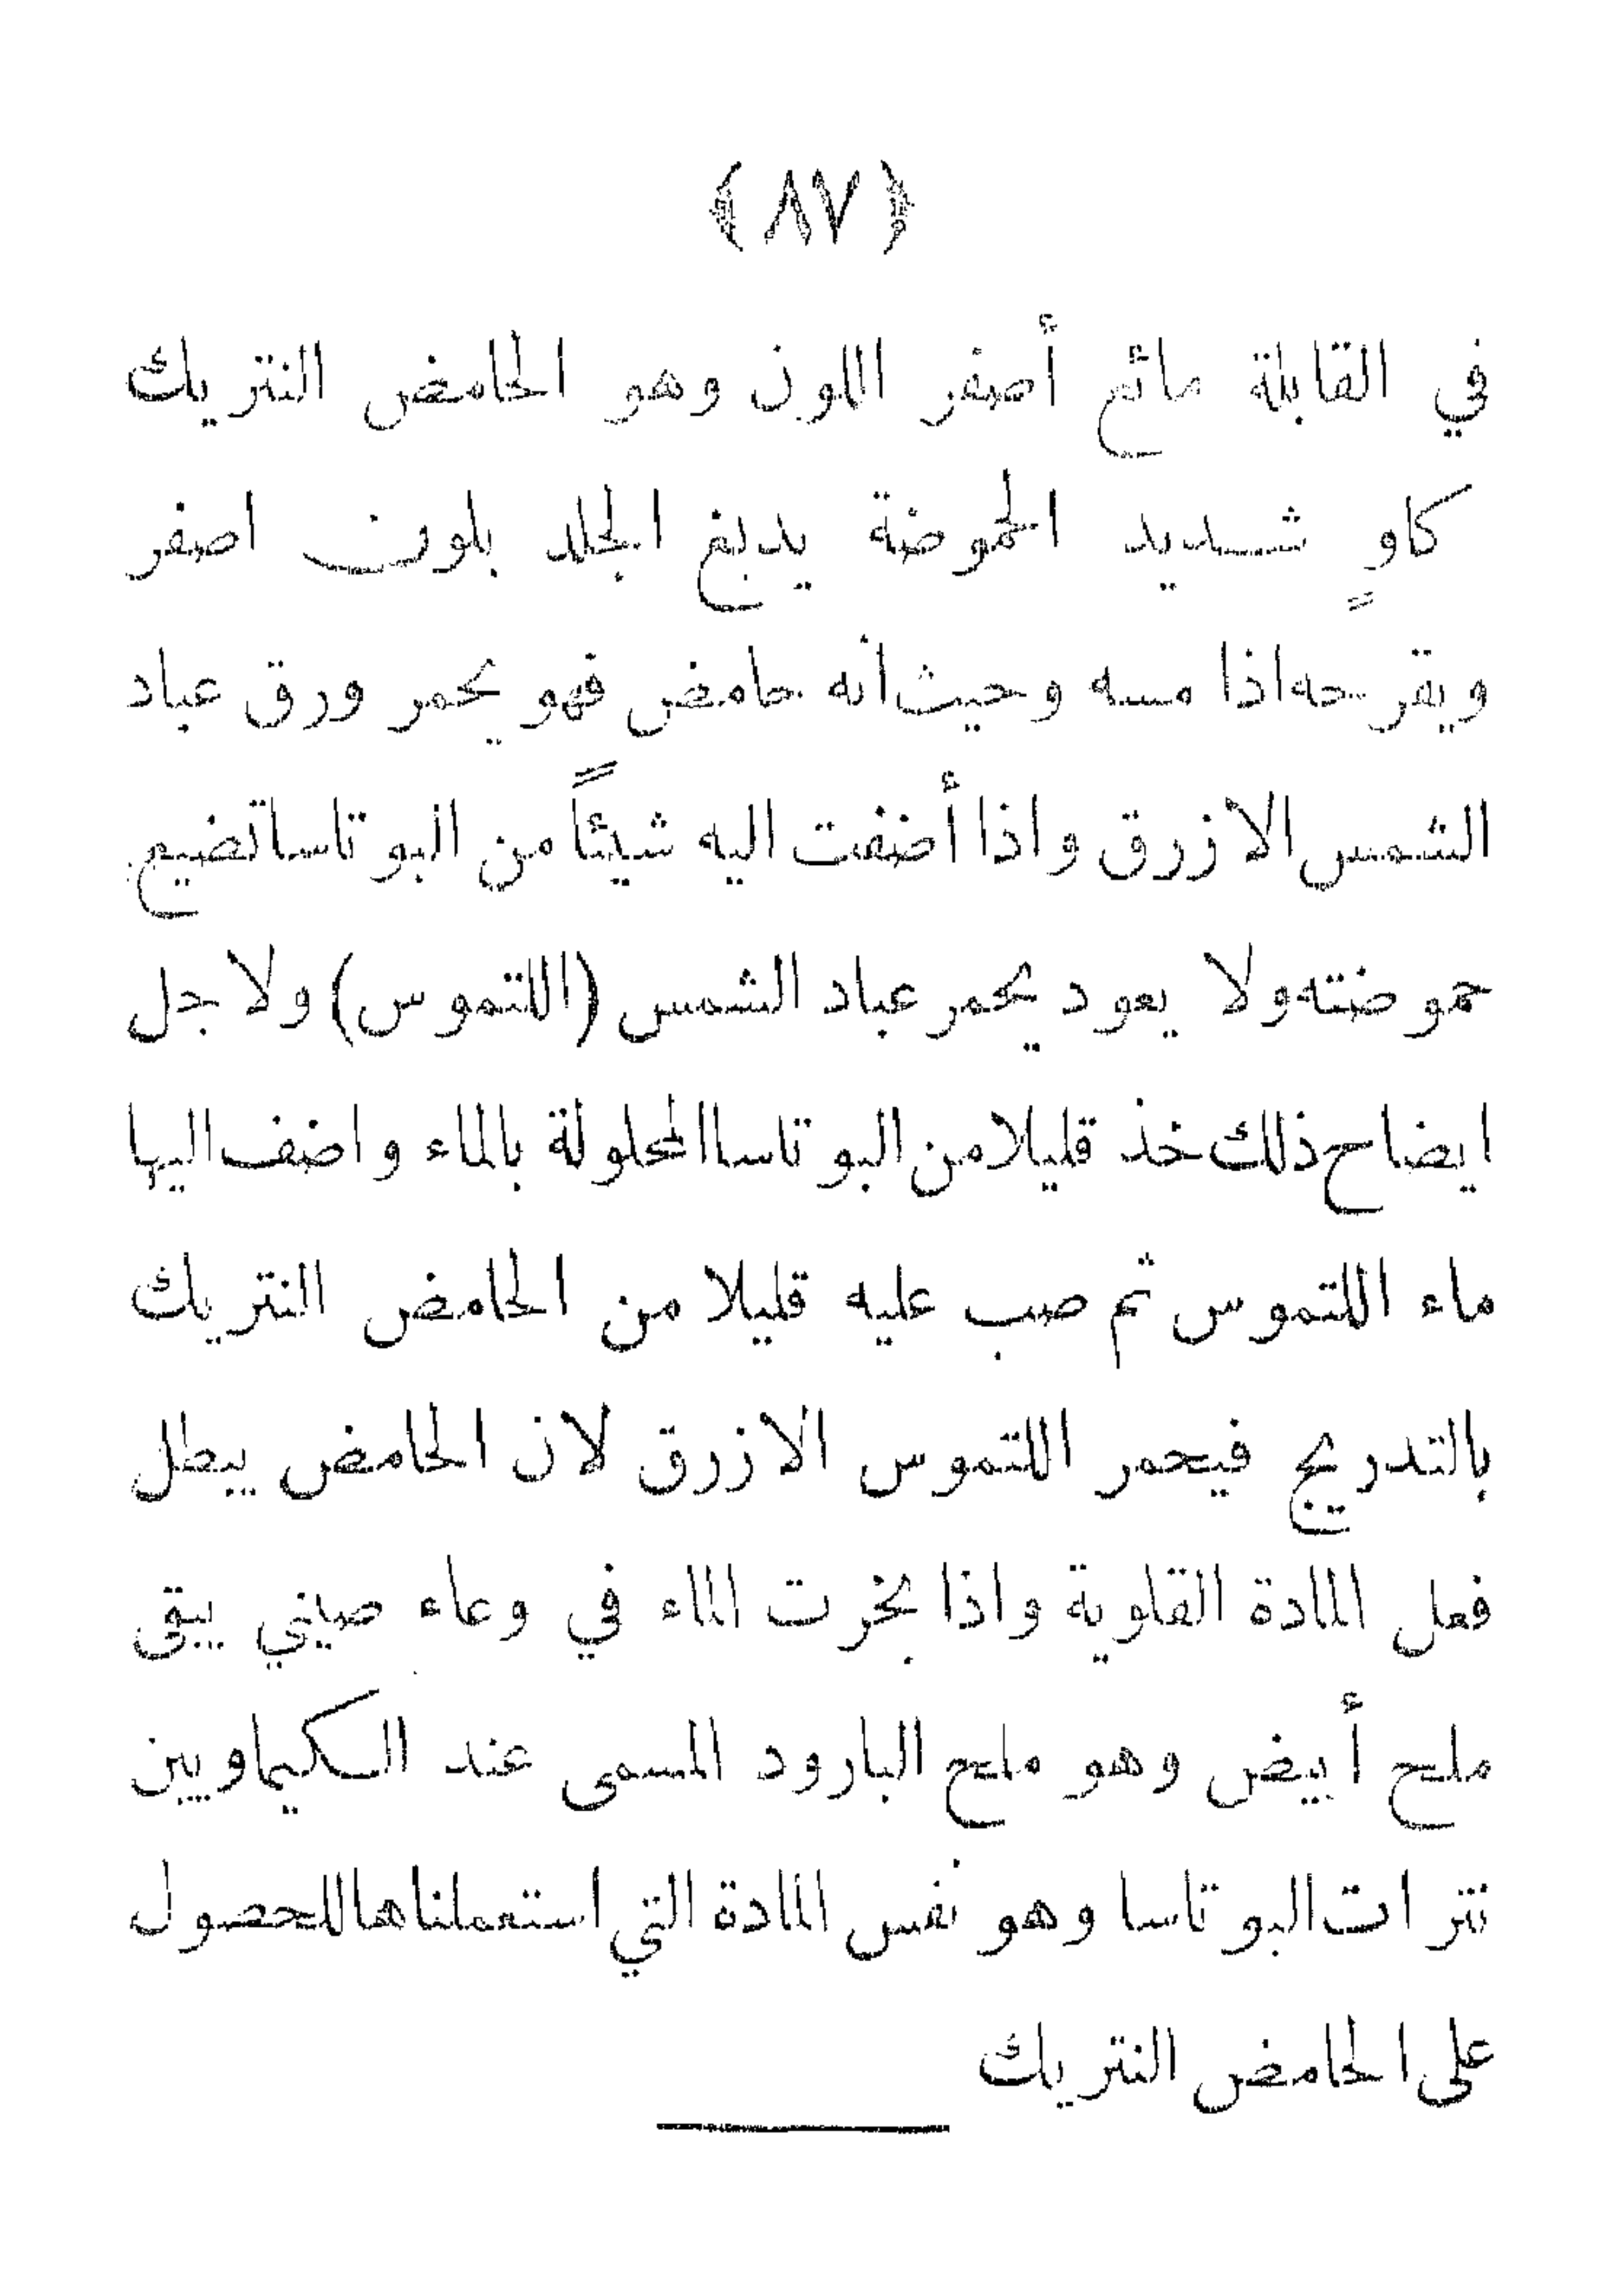 ﴿٨٧﴾
في القابلة مائع أصفر اللون وهو الحامض النتريك
كاوٍ شديد الحموضة يدبغ الجلد بلون اصفر
ويقرحه اذا مسه وحيث انه حامض فهو يحمر ورق عباد
الشمس الازرق واذا أضفت اليه شيئاً من البوتاسا تضيع
حموضته ولا يعود يحمر عباد الشمس (اللتموس) ولاجل
ايضاح ذلك خذ قليلا من البوتاسا المحلولة بالماء واضف اليها
ماء اللتموس ثم صب عليه قليلا من الحامض النتريك
بالتدريج فيحمر اللتموس الازرق لان الحامض يبطل
فعل المادة القلوية واذا بخرت الماء في وعاء صيني يبقى
ملح أبيض وهو ملح البارود المسمى عند الكيماويين
نترات البوتاسا وهو نفس المادة التي استعملناها للحصول
على الحامض النتريك